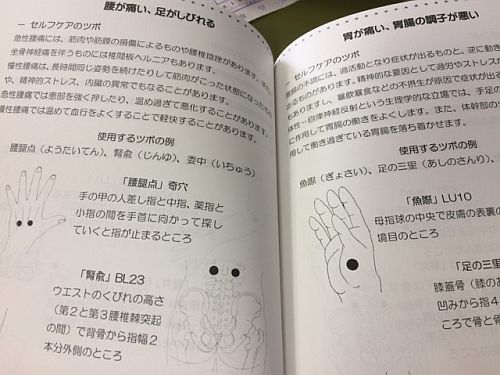 腰が痛い、足がしびれる
－ セルフケアのツボ
急性腰痛には、筋肉や筋膜の損傷によるものや腰椎捻挫があります。
坐骨神経痛を伴うものには椎間板ヘルニアもあります。
慢性腰痛は、長時間同じ姿勢を続けたりして筋肉がこった状態になったもの
や、精神的ストレス、内臓の異常でもなることがあります。
急性腰痛では患部を強く押したり、温め過ぎて悪化することがあります。
慢性腰痛では温めて血行をよくすることで軽快することがあります。
使用するツボの例
腰腿点（ようたいてん）、腎兪（じんゆ）、委中（いちゅう）
「腰腿点」奇穴
手の甲の人差し指と中指、薬指と
小指の間を手首に向かって探し
ていくと指が止まるところ
「腎兪」BL23
ウエストのくびれの高さ
（第２と第３腰椎棘突起
の間）で背骨から指幅２
本分外側のところ
胃が痛い、胃腸の調子が悪い
セルフケアのツボ
胃腸の不調には、過活動となり症状が出るものと、逆に動き
出るものがあります。精神的な要因として過労やストレスが
もありますし、暴飲暴食などの不摂生が原因で症状が出
体性－自律神経反射という生理学的な立場では、手足の
に作用して胃腸の働きをよくします。また、体幹部の
用して働き過ぎている胃腸を落ち着かせます。
使用するツボの例
魚際（ぎょさい）、足の三里（あしのさんり）、
「魚際」LU10
母指球の中央で皮膚の表裏の
境目のところ
「足の三里
膝蓋骨（膝のお
凹みから指４
ころで骨と骨